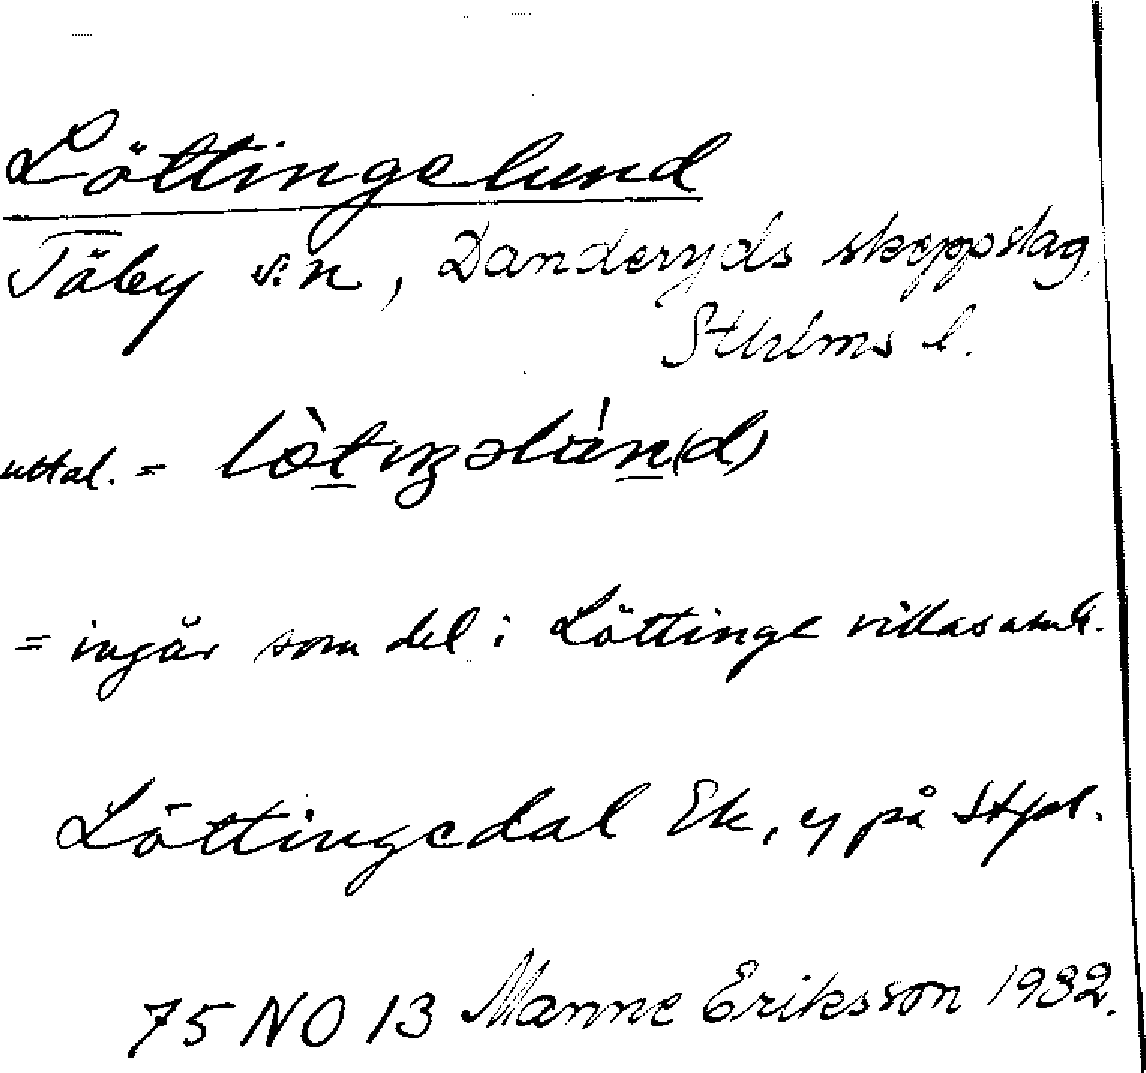 Löttingelund
Täby sn, Danderyds skeppslag,
Sthlms l.
uttal. =
= ingår som del i Löttinge villasamh.
Löttingedal Ek, ej på Stpl.
75 NO 13 Manne Eriksson 1932.